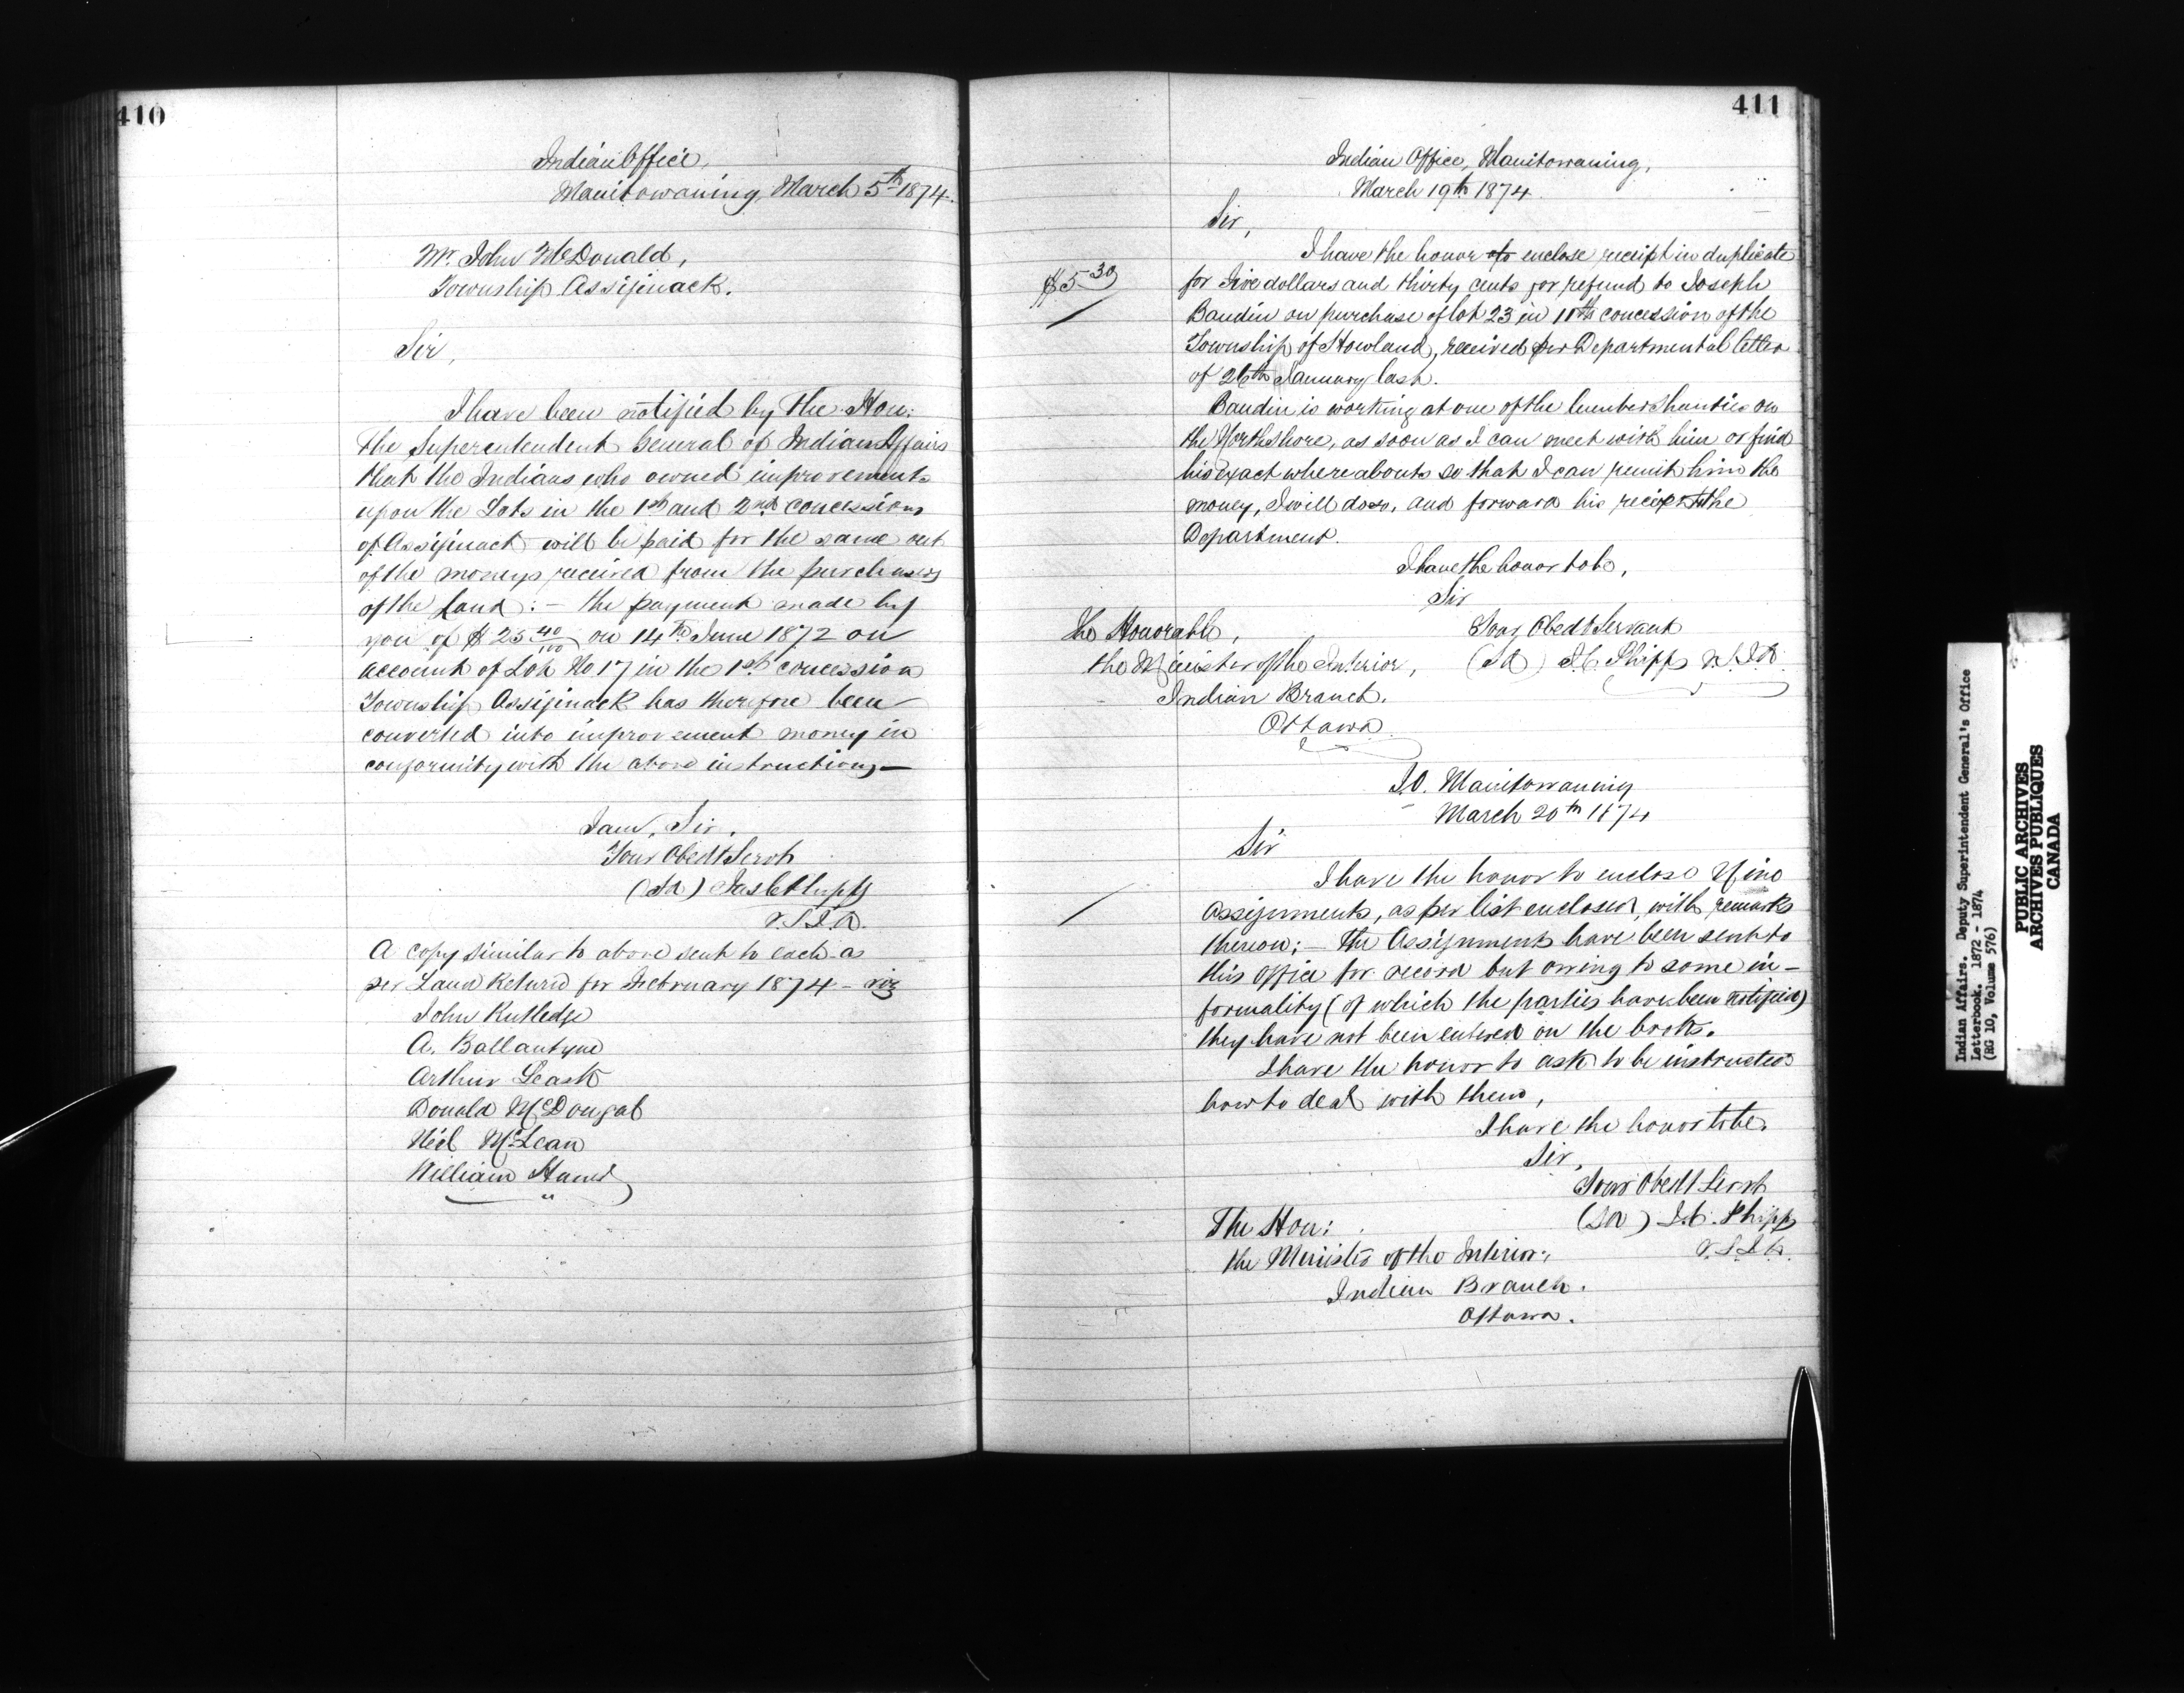 410
Indian Office,
Manitowaning, March 5th 1874.
Mr. John McDonald,
Township Assiginack.
Sir,
I have been notified by The Hon:
the Superintendent General of Indian Affairs
that the Indians who owned improvements
upon the Lots in the 1st and 2nd concessions
of Assiginack will be paid for the same out
of the moneys received from the purchasers
of the Land: – the payment made by
you of $25 40/100 on 14th June 1872 on
account of Lot No 17 in the 1st concession
Township Assiginack has therefore been
converted into improvement money in
conformity with the above instructions –
I am, Sir,
Your Obedt Servt
(Sd) Jas C Phipps
V.S.I.A.
A copy similar to above sent to each as
per Land Return for February 1874 – viz
John Rutledge
A. Ballantyne
Arthur Leask
Donald McDougal
Neil McLean
William
411
Indian Office, Manitowaning,
March 19th 1874
Sir,
I have the honor to enclose receipt in duplicate
$5 30
for Five dollars and thirty cents for refund to Joseph
Baudin on purchase of lot 23 in 11th concession of the
Township of Howland, received per Departmental letter
of 26th January last.
Baudin is working at one of the lumber shanties on
the North Shore, as soon as I can meet with him or find
his exact whereabouts so that I can remit him the
money, I will do so, and forward his receipt to the
Department.
I have the honor to be,
Sir
Your Obedt Servant
(Sd) J.C. Phipps V.S.I.A.
The Honorable,
the Minister of the Interior,
Indian Branch.
Ottawa
I.O. Manitowaning
March 20th 1874
Sir
I have the honor to enclose Nine
Assignments, as per list enclosed, with remarks
thereon; – The Assignments have been sent to
this office for record but owing to some in-
formality (of which the parties have been notified)
they have not been entered on the books.
I have the honor to ask to be instructed
how to deal with them,
I have the honor to be.
Sir,
Your Obedt Servt
(Sd) J.C. Phipps
V.S.I.A.
The Hon:
the Minister of the Interior,
Indian Branch.
Ottawa.
Indian Affairs. Deputy Superintendent General's Office
Letterbook. 1872 - 1874
(RG 10, Volume 576)
PUBLIC ARCHIVES
ARCHIVES PUBLIQUES
CANADA